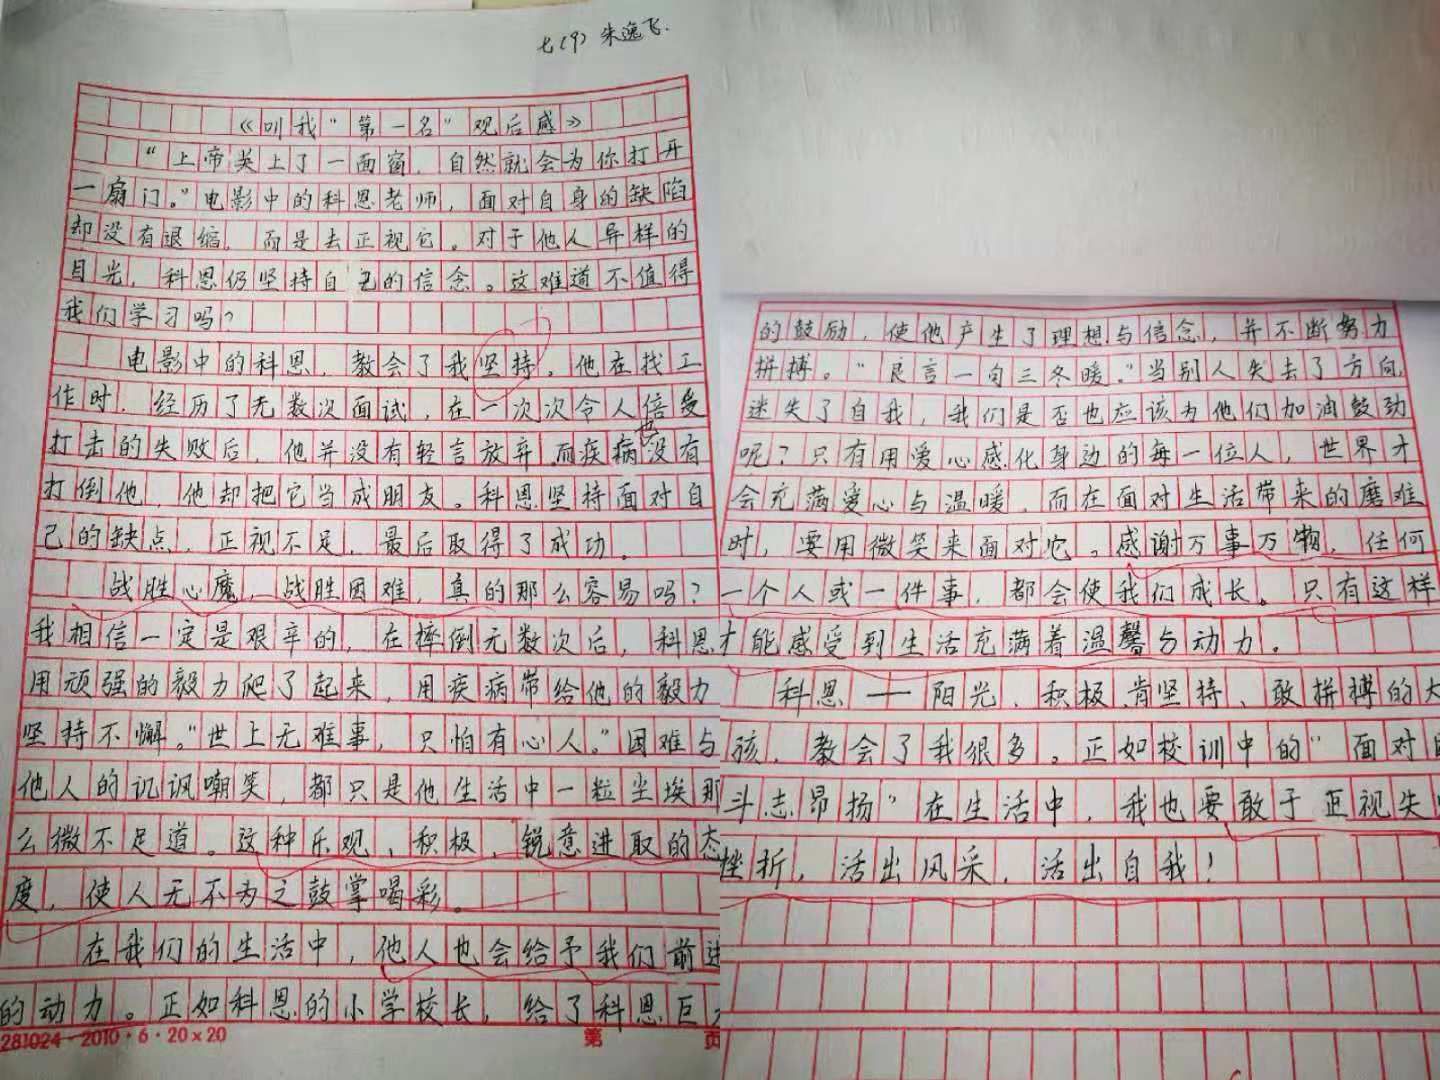 七(9) 朱逸飞.
《叫我“第一名”观后感》
“上帝关上了一面窗，自然就会为你打开
一扇门。”电影中的科恩老师，面对自身的缺陷
却没有退缩，而是去正视它。对于他人异样的
目光，科恩仍坚持自己的信念。这难道不值得
我们学习吗？
电影中的科恩，教会了我坚持。他在找工
作时，经历了无数次面试，在一次次令人倍受
打击的失败后，他并没有轻言放弃，而疾病也没有
打倒他，他却把它当成朋友。科恩坚持面对自
己的缺点，正视不足，最后取得了成功。
战胜心魔，战胜困难，真的那么容易吗？
我相信一定是艰辛的，在摔倒无数次后，科恩
用顽强的毅力爬了起来，用疾病带给他的毅力
坚持不懈。“世上无难事，只怕有心人。”困难与
他人的讥讽嘲笑，都只是他生活中一粒尘埃那
么微不足道。这种乐观、积极、锐意进取的态
度，使人无不为之鼓掌喝彩。
在我们的生活中，他人也会给予我们前进
的动力。正如科恩的小学校长，给了科恩巨
281024·2010·6·20×20 第 页
的鼓励，使他产生了理想与信念，并不断努力
拼搏。“良言一句三冬暖。”当别人失去了方向，
迷失了自我，我们是否也应该为他们加油鼓劲
呢？只有用爱心感化身边的每一位人，世界才
会充满爱心与温暖，而在面对生活带来的磨难
时，要用微笑来面对它。感谢万事万物，任何
一个人或一件事，都会使我们成长。只有这样
才能感受到生活充满着温馨与动力。
科恩——阳光、积极、肯坚持、敢拼搏的
孩，教会了我很多。正如校训中的“面对
斗志昂扬”在生活中，我也要敢于正视失
挫折，活出风采，活出自我！